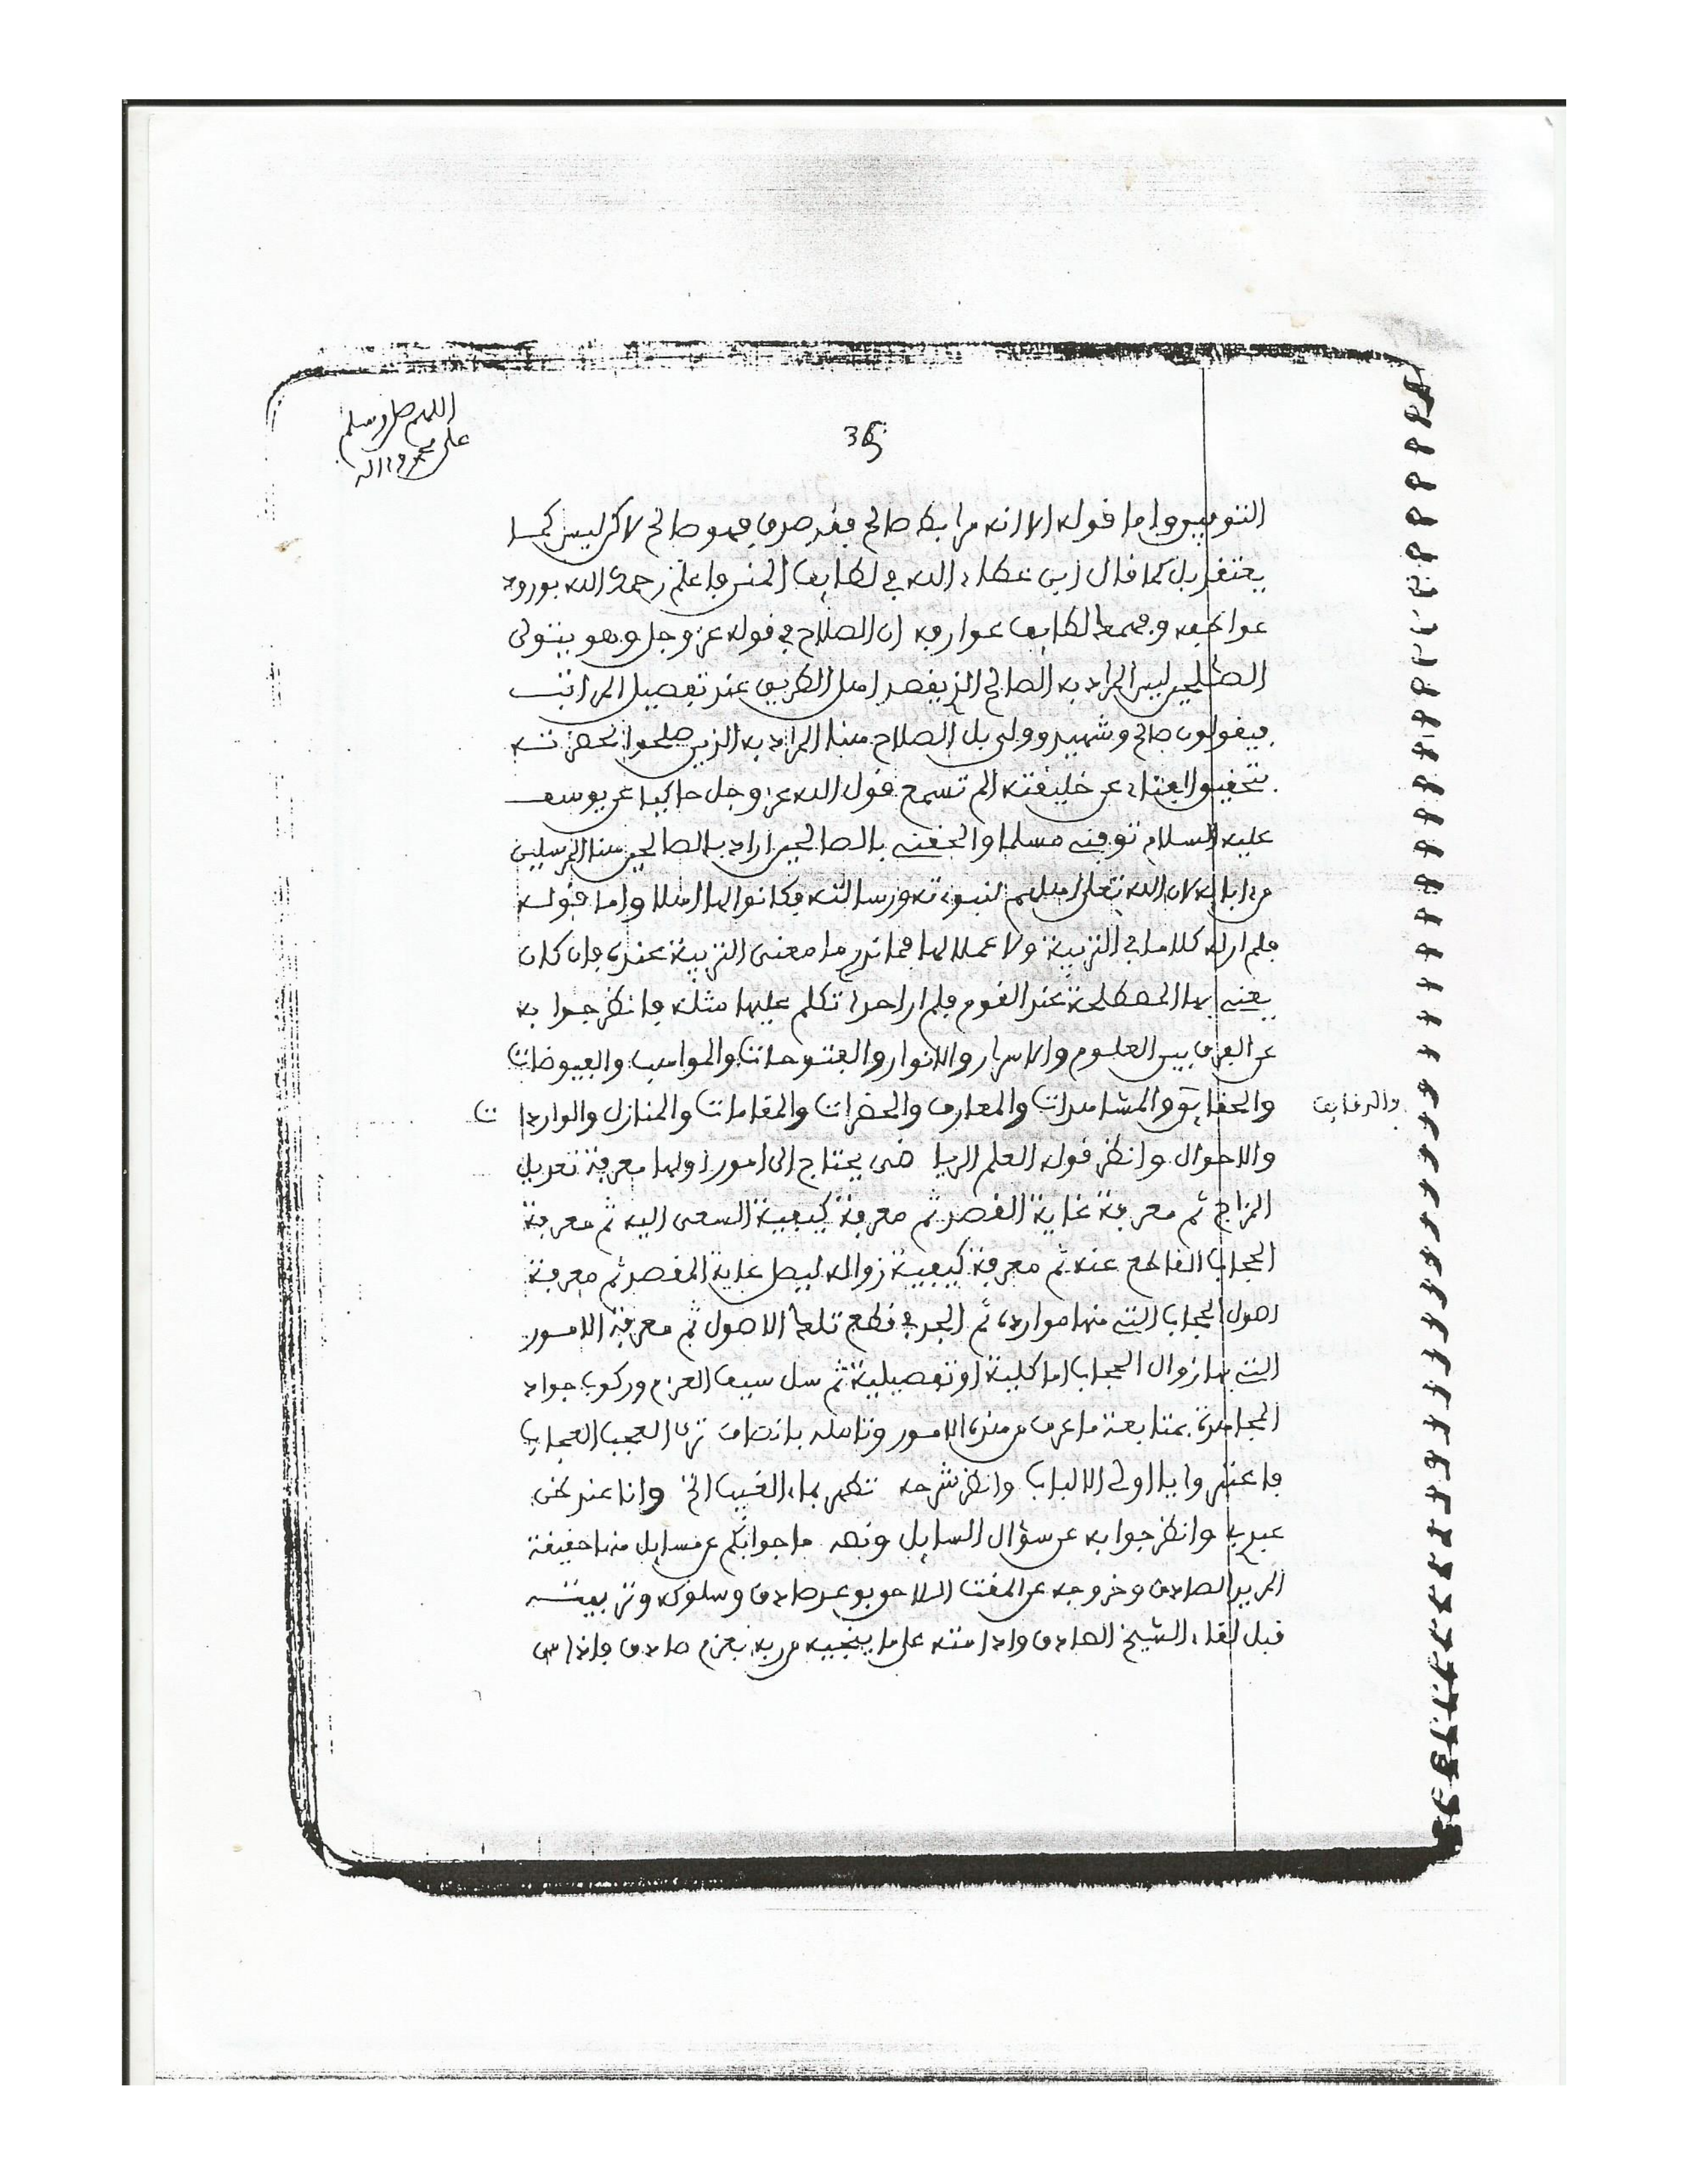 اللهم صل وسلم
على محمد واله
36
التوفيق واما قوله الا انه مرابط صالح فقد صدق فهو صالح لاكن ليس كما
يعتقد بل كما قال ابن عطاء الله في لطايف المنن فاعلم رحمك الله بورود
عواطفه وفهمك لطايف عوارفه ان الصلاح في قوله عز وجل وهو يتولى
الصلحين ليس المراد به الصالح الذي يقصد اهل الطريق عند تفصيل المراتب
فيقولون صالح وشهيد وولي بل الصلاح هنا المراد به الذين صلحوا لحضرته
بتحقيق الفناء عن خليقته الم تسمع قول الله عز وجل حاكيا عن يوسف
عليه السلام توفني مسلما والحقني بالصالحين اراد بالصالحين هنا المرسلين
من ابايه لان الله تعلى اهلهم لنبوته ورسالته فكانوا لها اهلا واما قوله
فلم ار له كلاما في التربية ولا عملا لها فما ندري ما معنى التربية عنده فان كان
يعني بها المصطلحة عند القوم فلم ار احدا تكلم عليها مثله فانظر جوابه
عن الفرق بين العلوم والاسرار والانوار والفتوحات والمواهب والفيوضات
والحقايق والمشاهدات والمعارف والحضرات والمقامات والمنازل والواردات
والدقايق
والاحوال وانظر قوله العلم الرياضي يحتاج الى امور اولها معرفة تعديل
المزاج ثم معرفة غاية القصد ثم معرفة كيفية السعي اليه ثم معرفة
الحجاب القاطع عنه ثم معرفة كيفية زواله ليصل غاية المقصد ثم معرفة
اصول الحجاب التي منها مواده ثم الجد في قطع تلك الاصول ثم معرفة الامور
التي بها زوال الحجاب اما كلية او تفصيلية ثم سل سيف العزم وركوب جواد
المجاهدة بمتابعة ما عرف من هذه الامور وتامله بانصاف ترى العجب العجاب
فاعتبروا يا اولي الالباب وانظر شرحه تطهر بماء الغيب الخ وانا عند ظن
عبدي وانظر جوابه عن سؤال السايل ونصه ما جوابكم عن مسايل منها حقيقة
المريد الصادق وخروجه عن المقت اللاحق بوعد صادق وسلوكه وتربيته
قبل لقاء الشيخ الصادق وادامته على ما ينجيه من ربه بعزم صادق